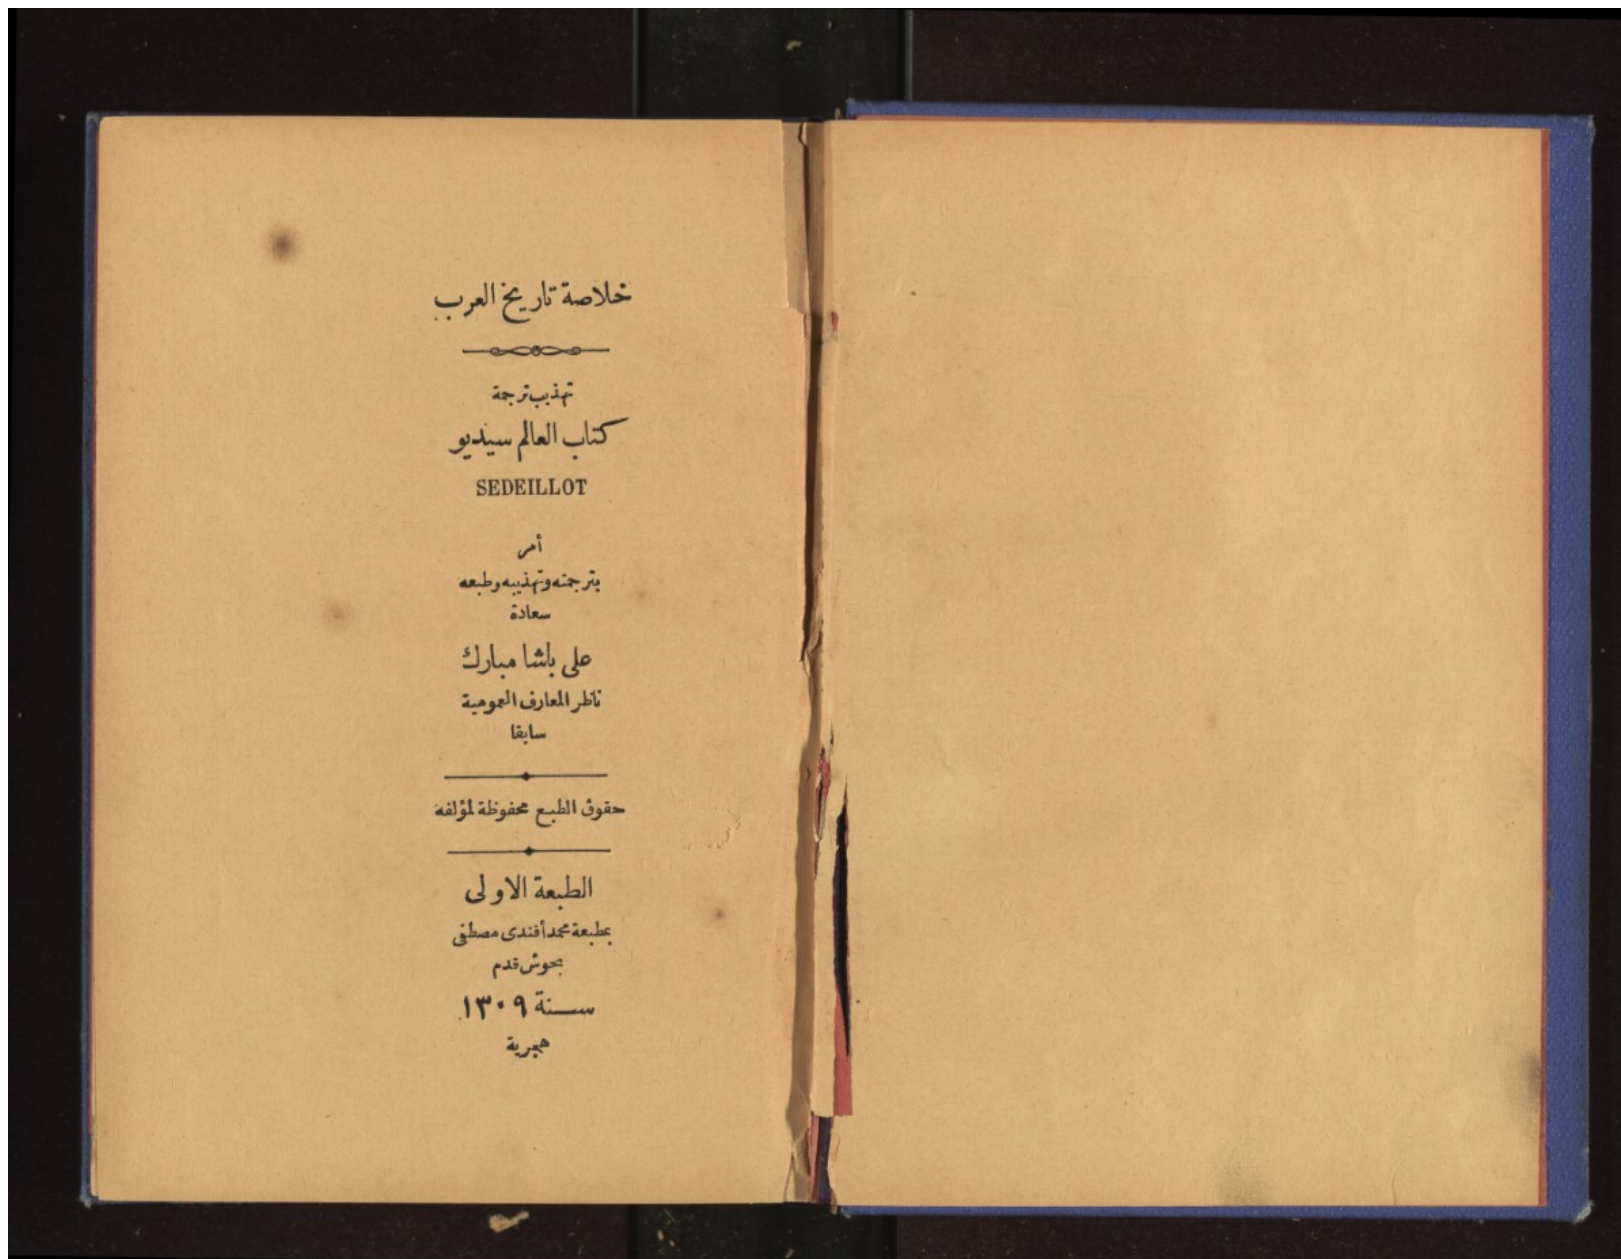 خلاصة تاريخ العرب
تهذيب ترجمة
كتاب العالم سيديو
SEDEILLOT
أمر
بترجمته وتهذيبه وطبعه
سعادة
على باشا مبارك
ناظر المعارف العمومية
سابقا
حقوق الطبع محفوظة لمؤلفه
الطبعة الاولى
بمطبعة محمد أفندى مصطفى
بحوش قدم
سنة ١٣٠٩
هجرية